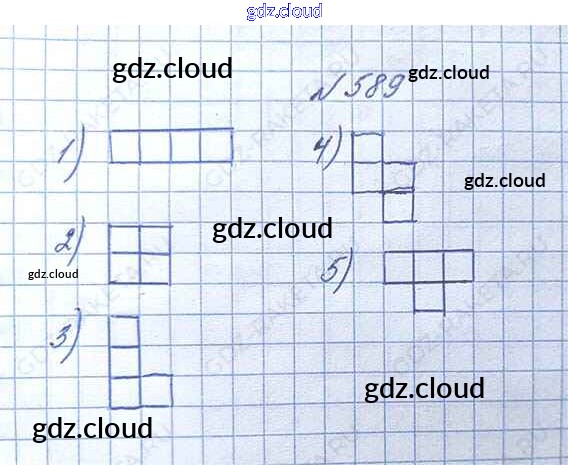 gdz.cloud
gdz.cloud
№ 589
gdz.cloud
1)
4)
gdz.cloud
2)
gdz.cloud
gdz.cloud
5)
3)
gdz.cloud
gdz.cloud